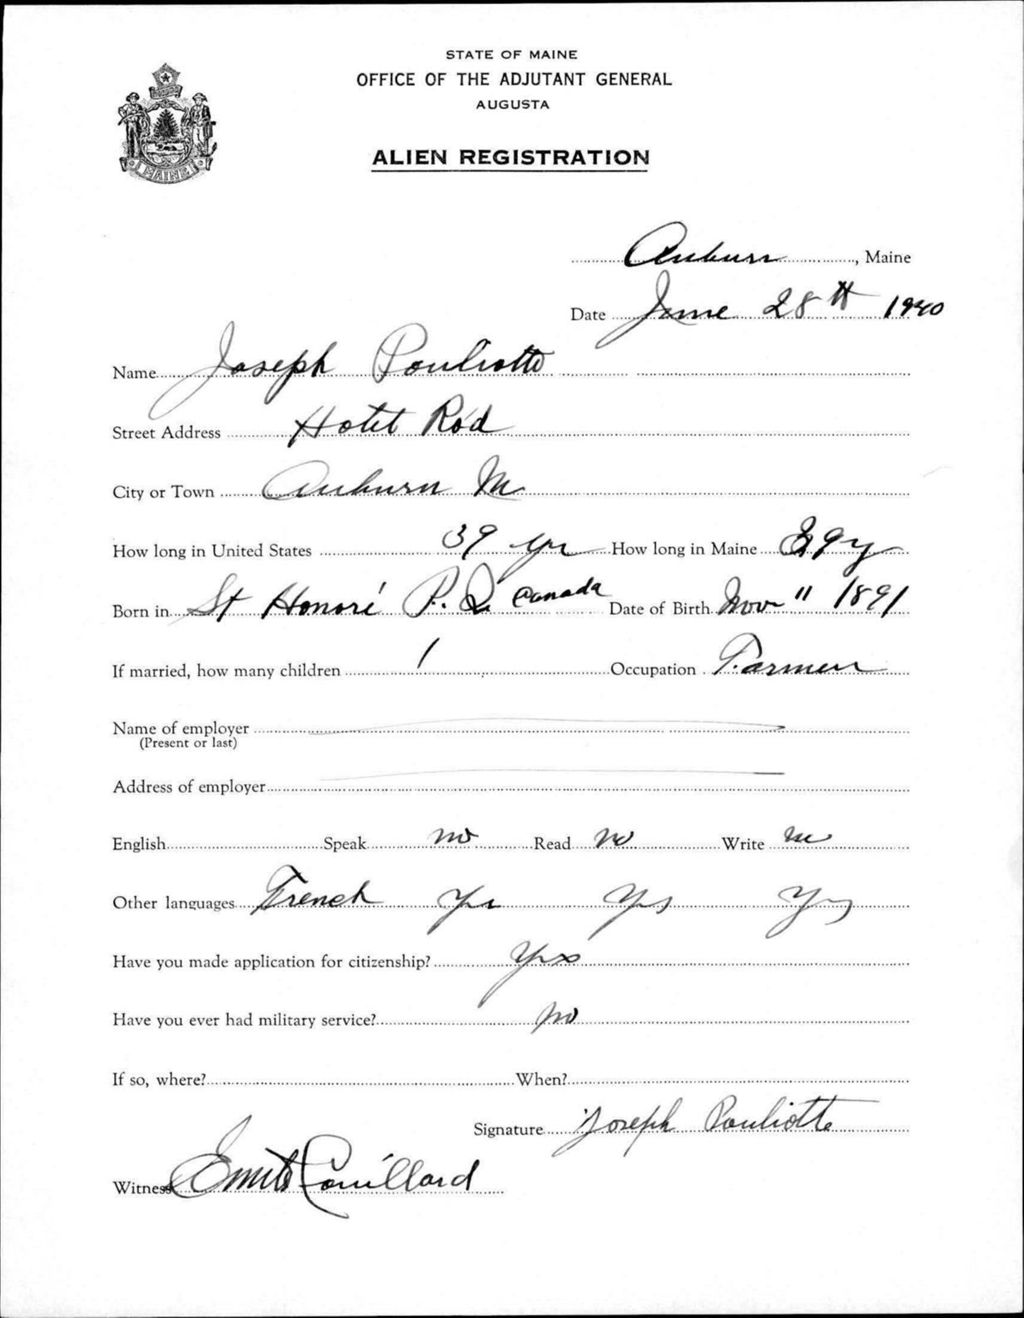 STATE OF MAINE
OFFICE OF THE ADJUTANT GENERAL
AUGUSTA
ALIEN REGISTRATION
MAINE
Auburn, Maine
Date June 28th 1940
Name Joseph Pouliotte
Street Address Hotel Rod
City or Town Auburn Me
How long in United States 39 yr How long in Maine 39 y
Born in St Honoré P. Q. Canada Date of Birth Nov 11 1891
If married, how many children 1 Occupation Farmer
Name of employer
(Present or last)
Address of employer
English Speak no Read no Write no
Other languages French Yes Yes Yes
Have you made application for citizenship? Yes
Have you ever had military service? no
If so, where? When?
Signature Joseph Pouliotte
Witness Couillard